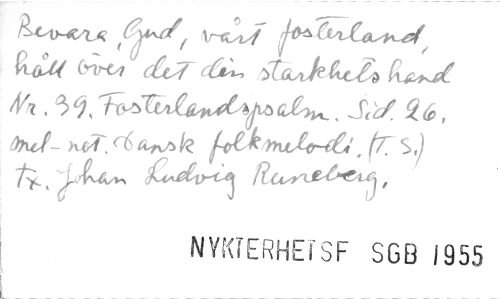 Bevara, Gud, vårt fosterland,
håll över det din starkhetshand
Nr. 39. Fosterlandspsalm. Sid. 26.
mel-not. Dansk folkmelodi. (T. S.)
Tx. Johan Ludvig Runeberg.
NYKTERHETSF SGB 1955